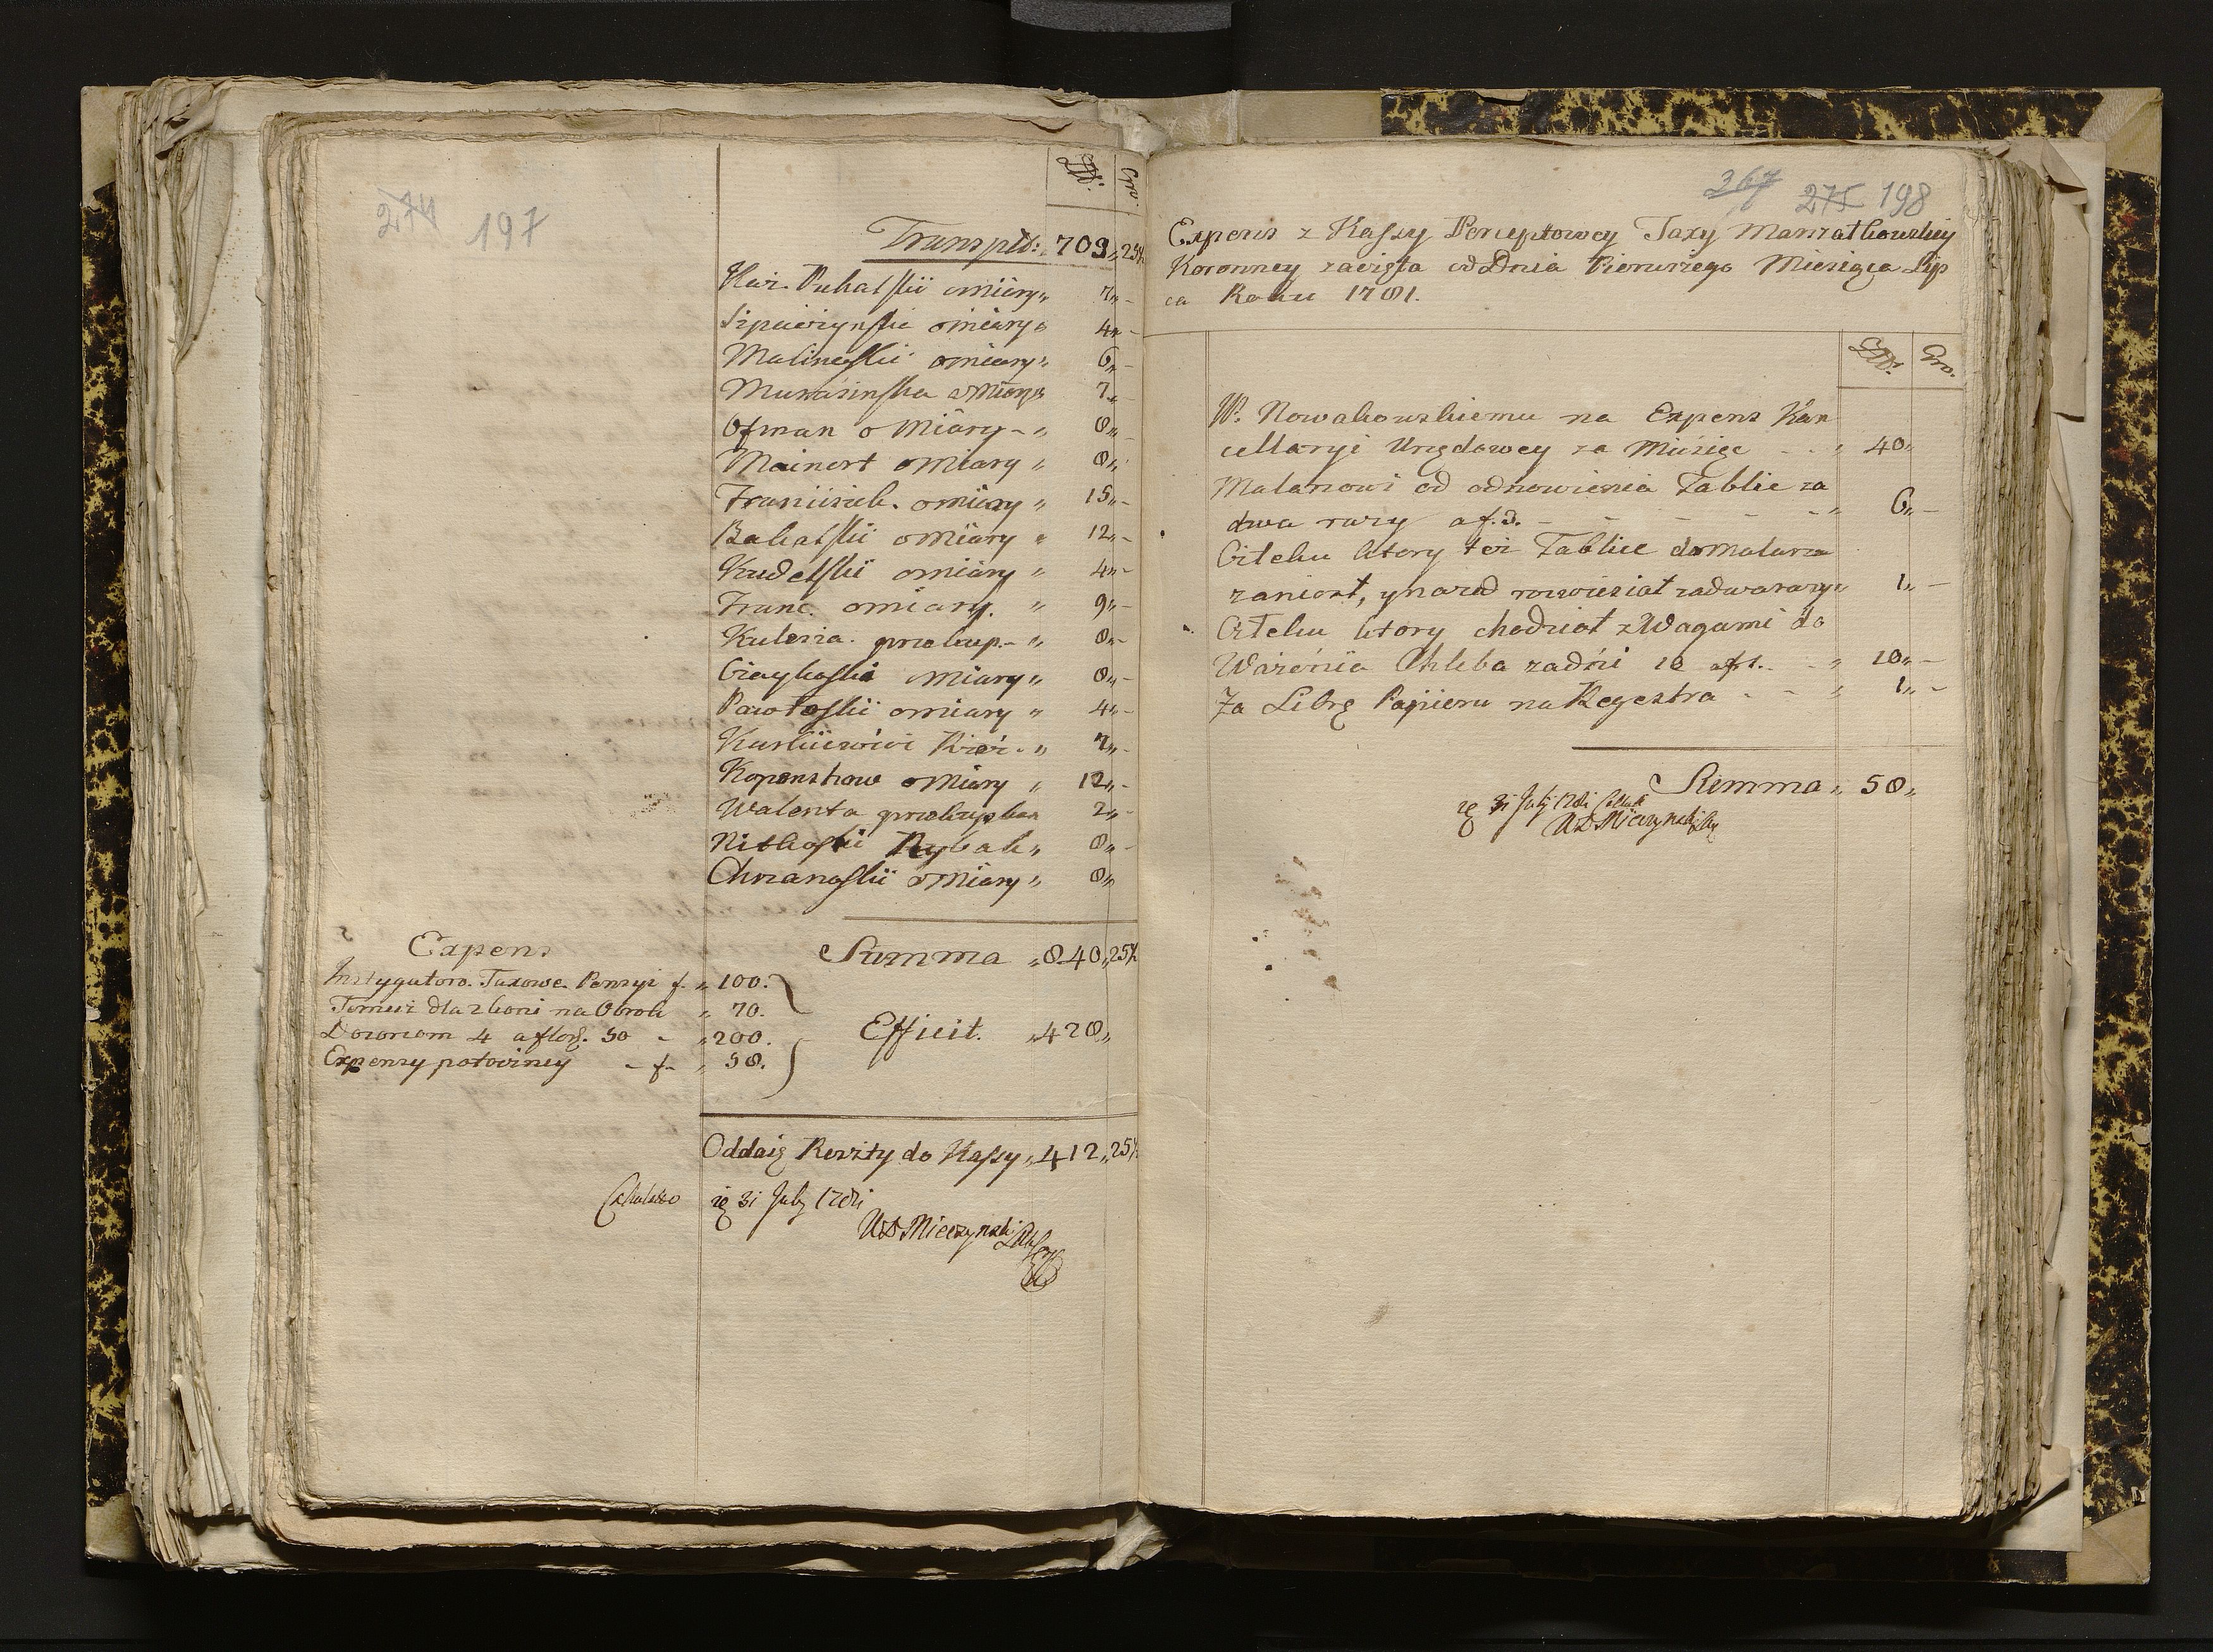 274 197
Zło: Gro.
Transpt: 709,, 25½
Kaz. Puhalskii o miary,, 7,,-
Szpaczynskii o miary,, 4,,-
Malinoskii o miary,, 6,,-
Murasinska o Miary,, 7,,
Ofman o Miary - ,, 8,,-
Mainert o Miary ,, 8,,
Franciszk. o miary ,, 15,,-
Bakalskii o Miary ,, 12,,-
Kudelskii o miary ,, 4,,-
Franc. o miary. ,, 9,,-
Kulesza. przekup.- ,, 8,,-
Miary,, 8,,-
Pawłoskii o miary ,, 4,,-
7,,-
Kopensztow o Miary ,, 12,,-
Walenta przekupka,, 2,,-
Nitkoskii Rybak,, 8,,-
Chrzanoskii o Miary,, 8,,
Summa ,,840,,25½
Expens
Instygatoro. Taxowe. Pensyi f. ,, 100.
Tymuż dla 2 koni na Obrok ,, 70.
Dozorcom 4 a flor. 50 - ,, 200.
Expensy potoczney - f- ,, 58.
Efficit. ,,428,,
Oddaię Reszty do Kassy,, 412,,25½
Calculatio ię 31 July 1781
Mieczynski
367 275 198
Expens z Kassy Perceptowey Taxy Marszałkowskiey
Koronney zaczęta od Dnia Pierwszego Miesiąca Lip
ca Roku 1781.
Zło: Gro.
W. Nowakowskiemu na Expens Kan
cellaryi Urzędowey za Miesiąc - - ,, 40,,
Malarzowi od odnowienia Tablic za
dwa razy a f. 3. - - - - - ,, 6,,-
Czteku ktory też Tablice do Malarza
zaniosł, y nazad rozwieszał za dwa razy,, 1,,-
Czteku ktory chodził z Wagami do
Ważenia Chleba za dni 10 a f 1. - ,, 10,,-
Za Librę Papieru na Regestra - - ,, 1,,-
Summa,, 58,,
ię 31 July 1781
Mieczynski